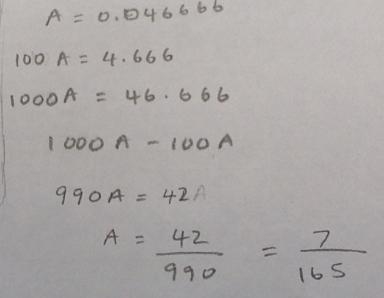 A = 0.046666
100 A = 4.666
1000A = 46.666
1000 A - 100A
990A = 42A
A = 42/990 = 7/165